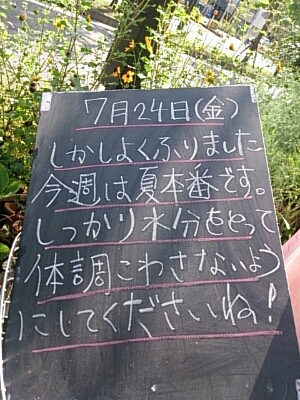 7月24日(金)
しかしよくふりました
今週は夏本番です。
しっかり水分をとって
体調こわさないよう
にしてくださいね!